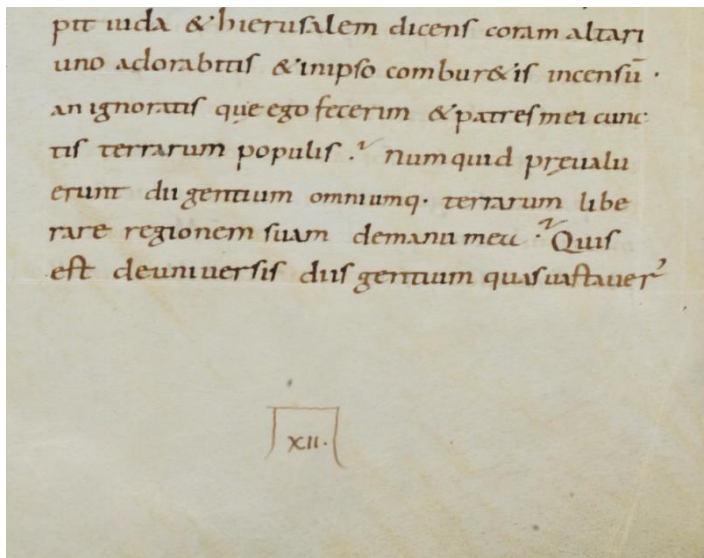 pit iuda & hierusalem dicens coram altari
uno adorabitis & inipso combur&is incensū ·
an ignoratis que ego fecerim & patres mei cunc
tis terrarum populis .? Numquid pręualu
erunt dii gentium omniumq· terrarum libe
rare regionem suam demanu mea .? Quis
est deuniuersis diis gentium quasuastauer̃
XII·